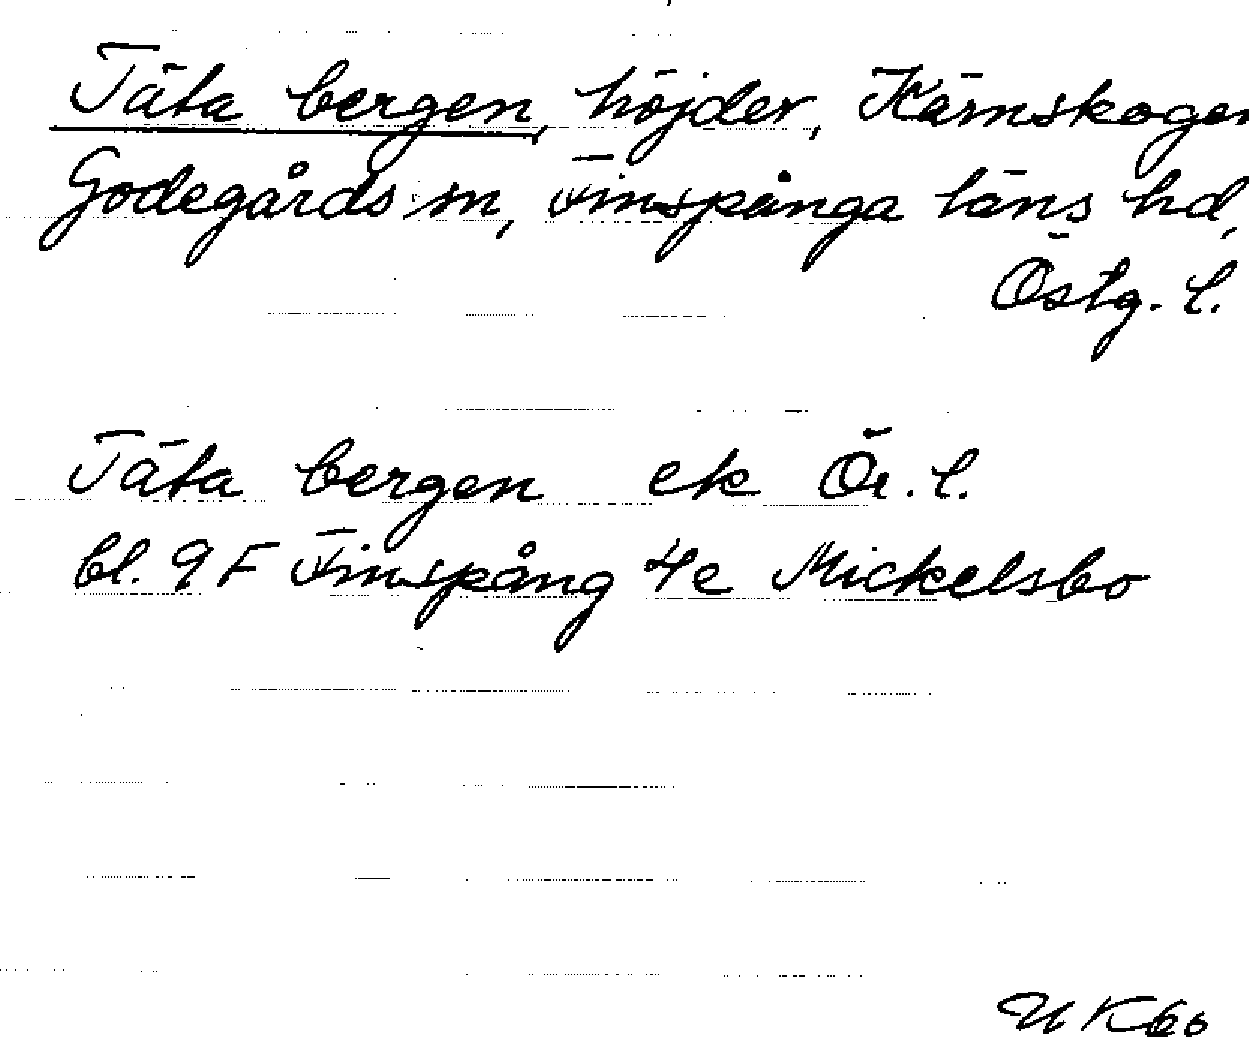 Täta bergen, höjder, Kärnskogen
Godegårds sn, Finspånga läns hd,
Östg. l.
Täta bergen ek Ör. l.
bl. 9F Finspång 4e Mickelsbo
UK66